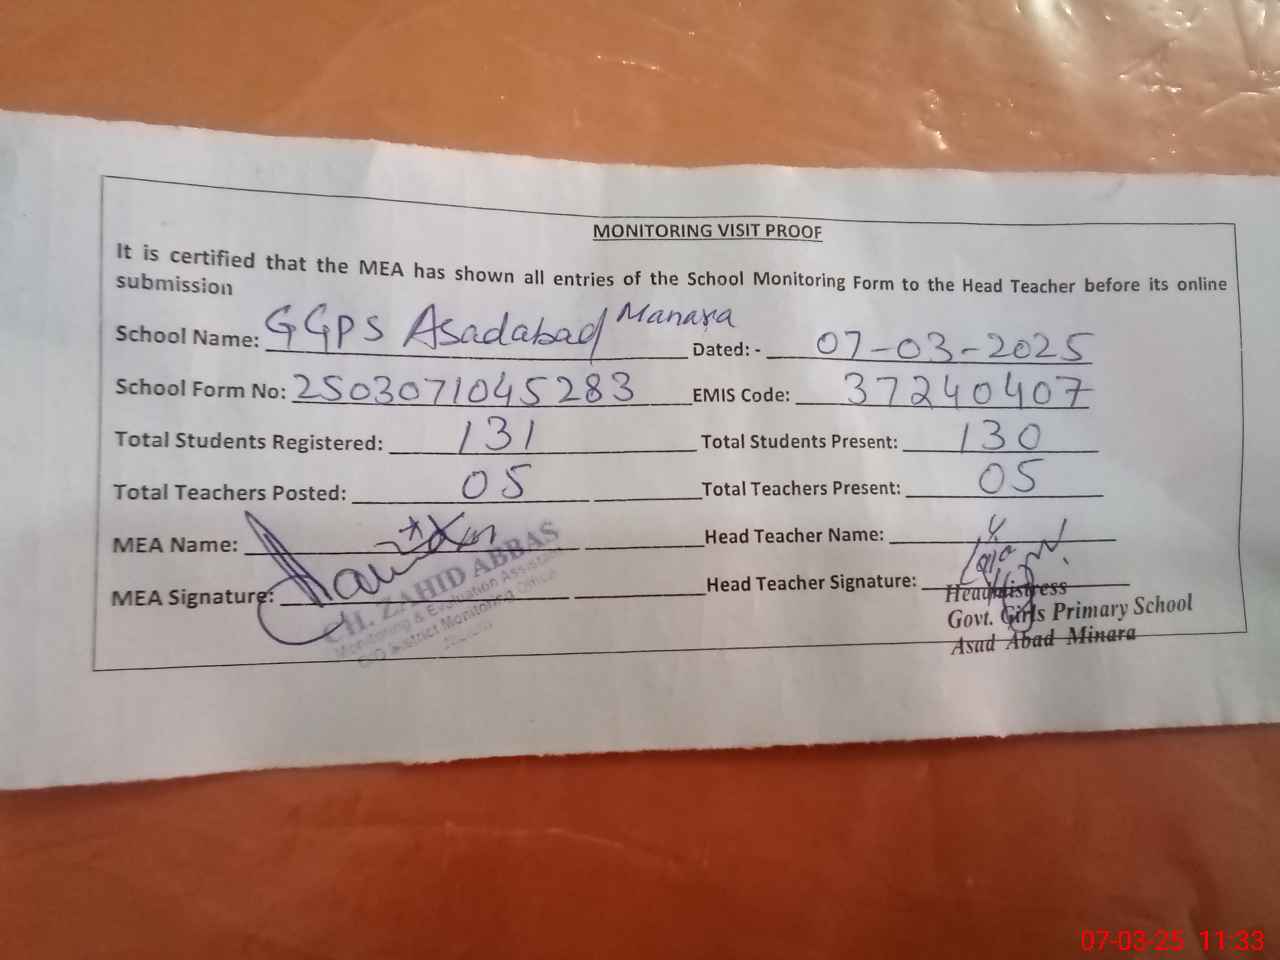 MONITORING VISIT PROOF
It is certified that the MEA has shown all entries of the School Monitoring Form to the Head Teacher before its online
submission
School Name: GGPS Asadabad Manara Dated: - 07-03-2025
School Form No: 2503071045283 EMIS Code: 37240407
Total Students Registered: 131 Total Students Present: 130
Total Teachers Posted: 05 Total Teachers Present: 05
MEA Name: Head Teacher Name:
MEA Signature: Head Teacher Signature:
CH. ZAHID ABBAS
Monitoring & Evaluation Assistant
District Monitoring Office
Headmistress
Govt. Girls Primary School
Asad Abad Minara
07-03-25 11:33